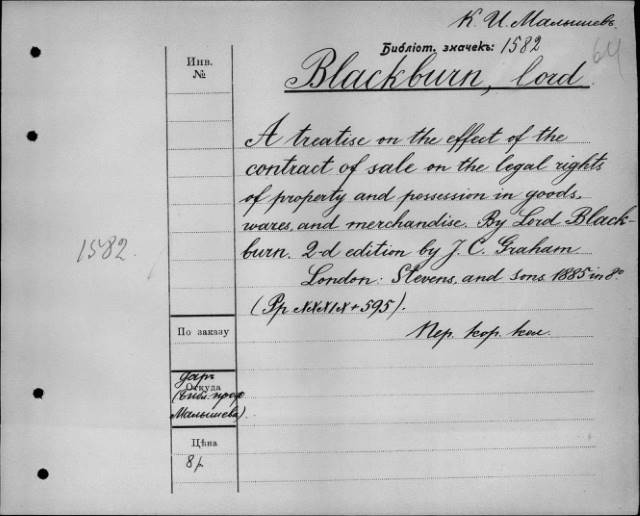 К. И. Малышевъ
Библіот. значекъ: 1582
64
Инв.
№
Blackburn, lord
A treatise on the effect of the
contract of sale on the legal rights
of property and possession in goods,
wares, and merchandise. By Lord Black-
burn. 2-d edition by J. C. Graham
London: Stevens, and sons 1885 in 8º
(Pp XXXIX + 595).
Пер. кор. кол.
1582.
По заказу
даръ
Откуда
(библ. проф.
Малышева).
Цѣна
8 р.